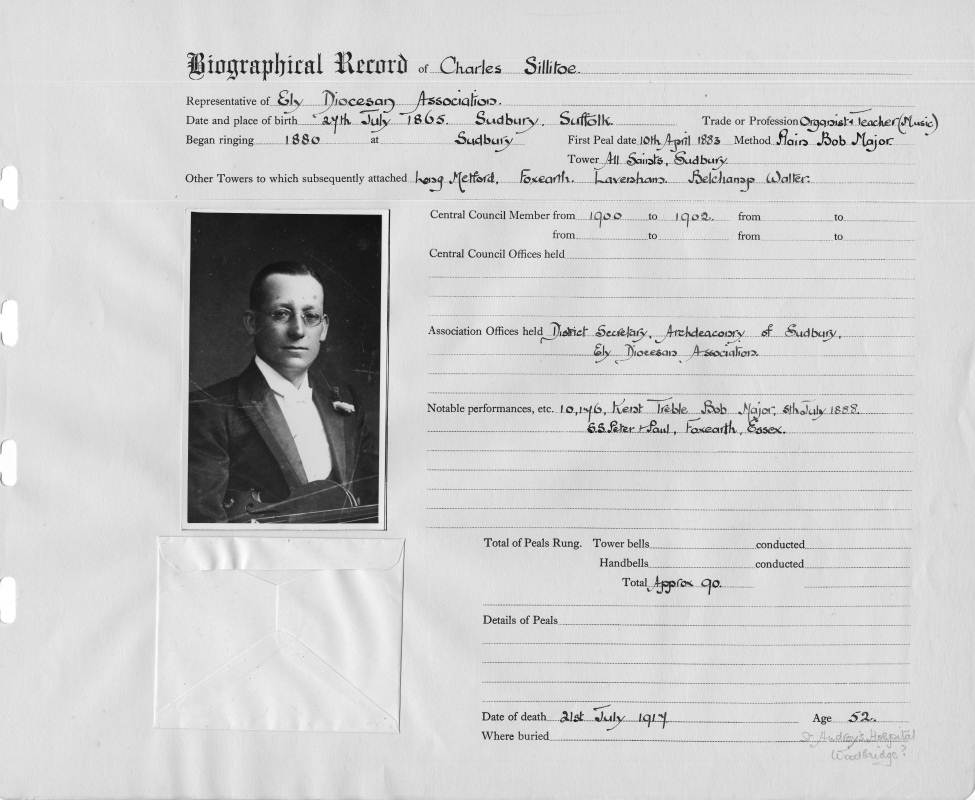 Biographical Record of Charles Sillitoe.
Representative of Ely Diocesan Association.
Date and place of birth 27th July 1865. Sudbury. Suffolk. Trade or Profession Organist & Teacher (Music)
Began ringing 1880 at Sudbury First Peal date 10th April 1883 Method Plain Bob Major
Tower All Saints, Sudbury
Other Towers to which subsequently attached Long Melford, Foxearth. Lavenham. Belchamp Walter.
Central Council Member from 1900 to 1902. from to
from to from to
Central Council Offices held
Association Offices held District Secretary, Archdeaconry of Sudbury,
Ely Diocesan Association.
Notable performances, etc. 10,176, Kent Treble Bob Major, 5th July 1888.
S.S. Peter & Paul, Foxearth, Essex.
Total of Peals Rung. Tower bells conducted
Handbells conducted
Total Approx 90.
Details of Peals
Date of death 21st July 1917 Age 52.
Where buried St Audry's Hospital
Woodbridge?